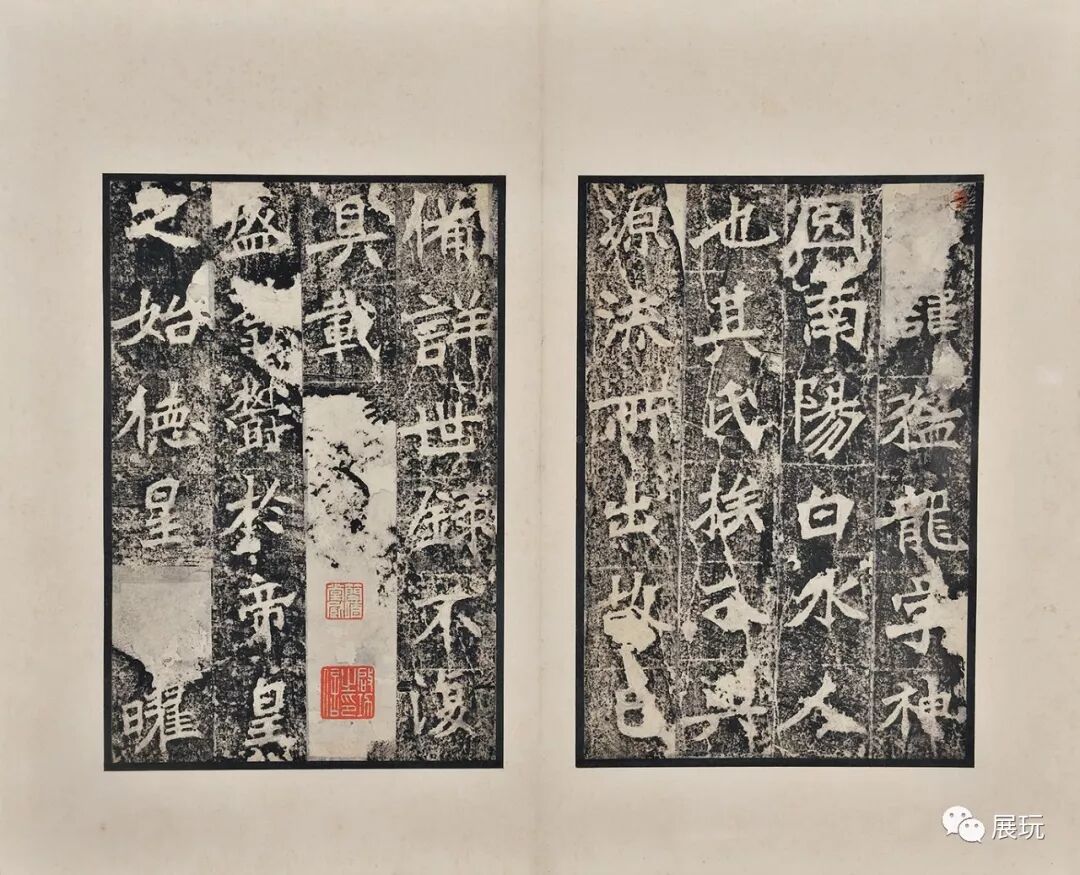 諱猛龍字神
冏南陽白水人
也其氏族分興
源流所出故已
俻詳世録不復
具載
盛鬱於帝皇
之始徳星曜
展玩